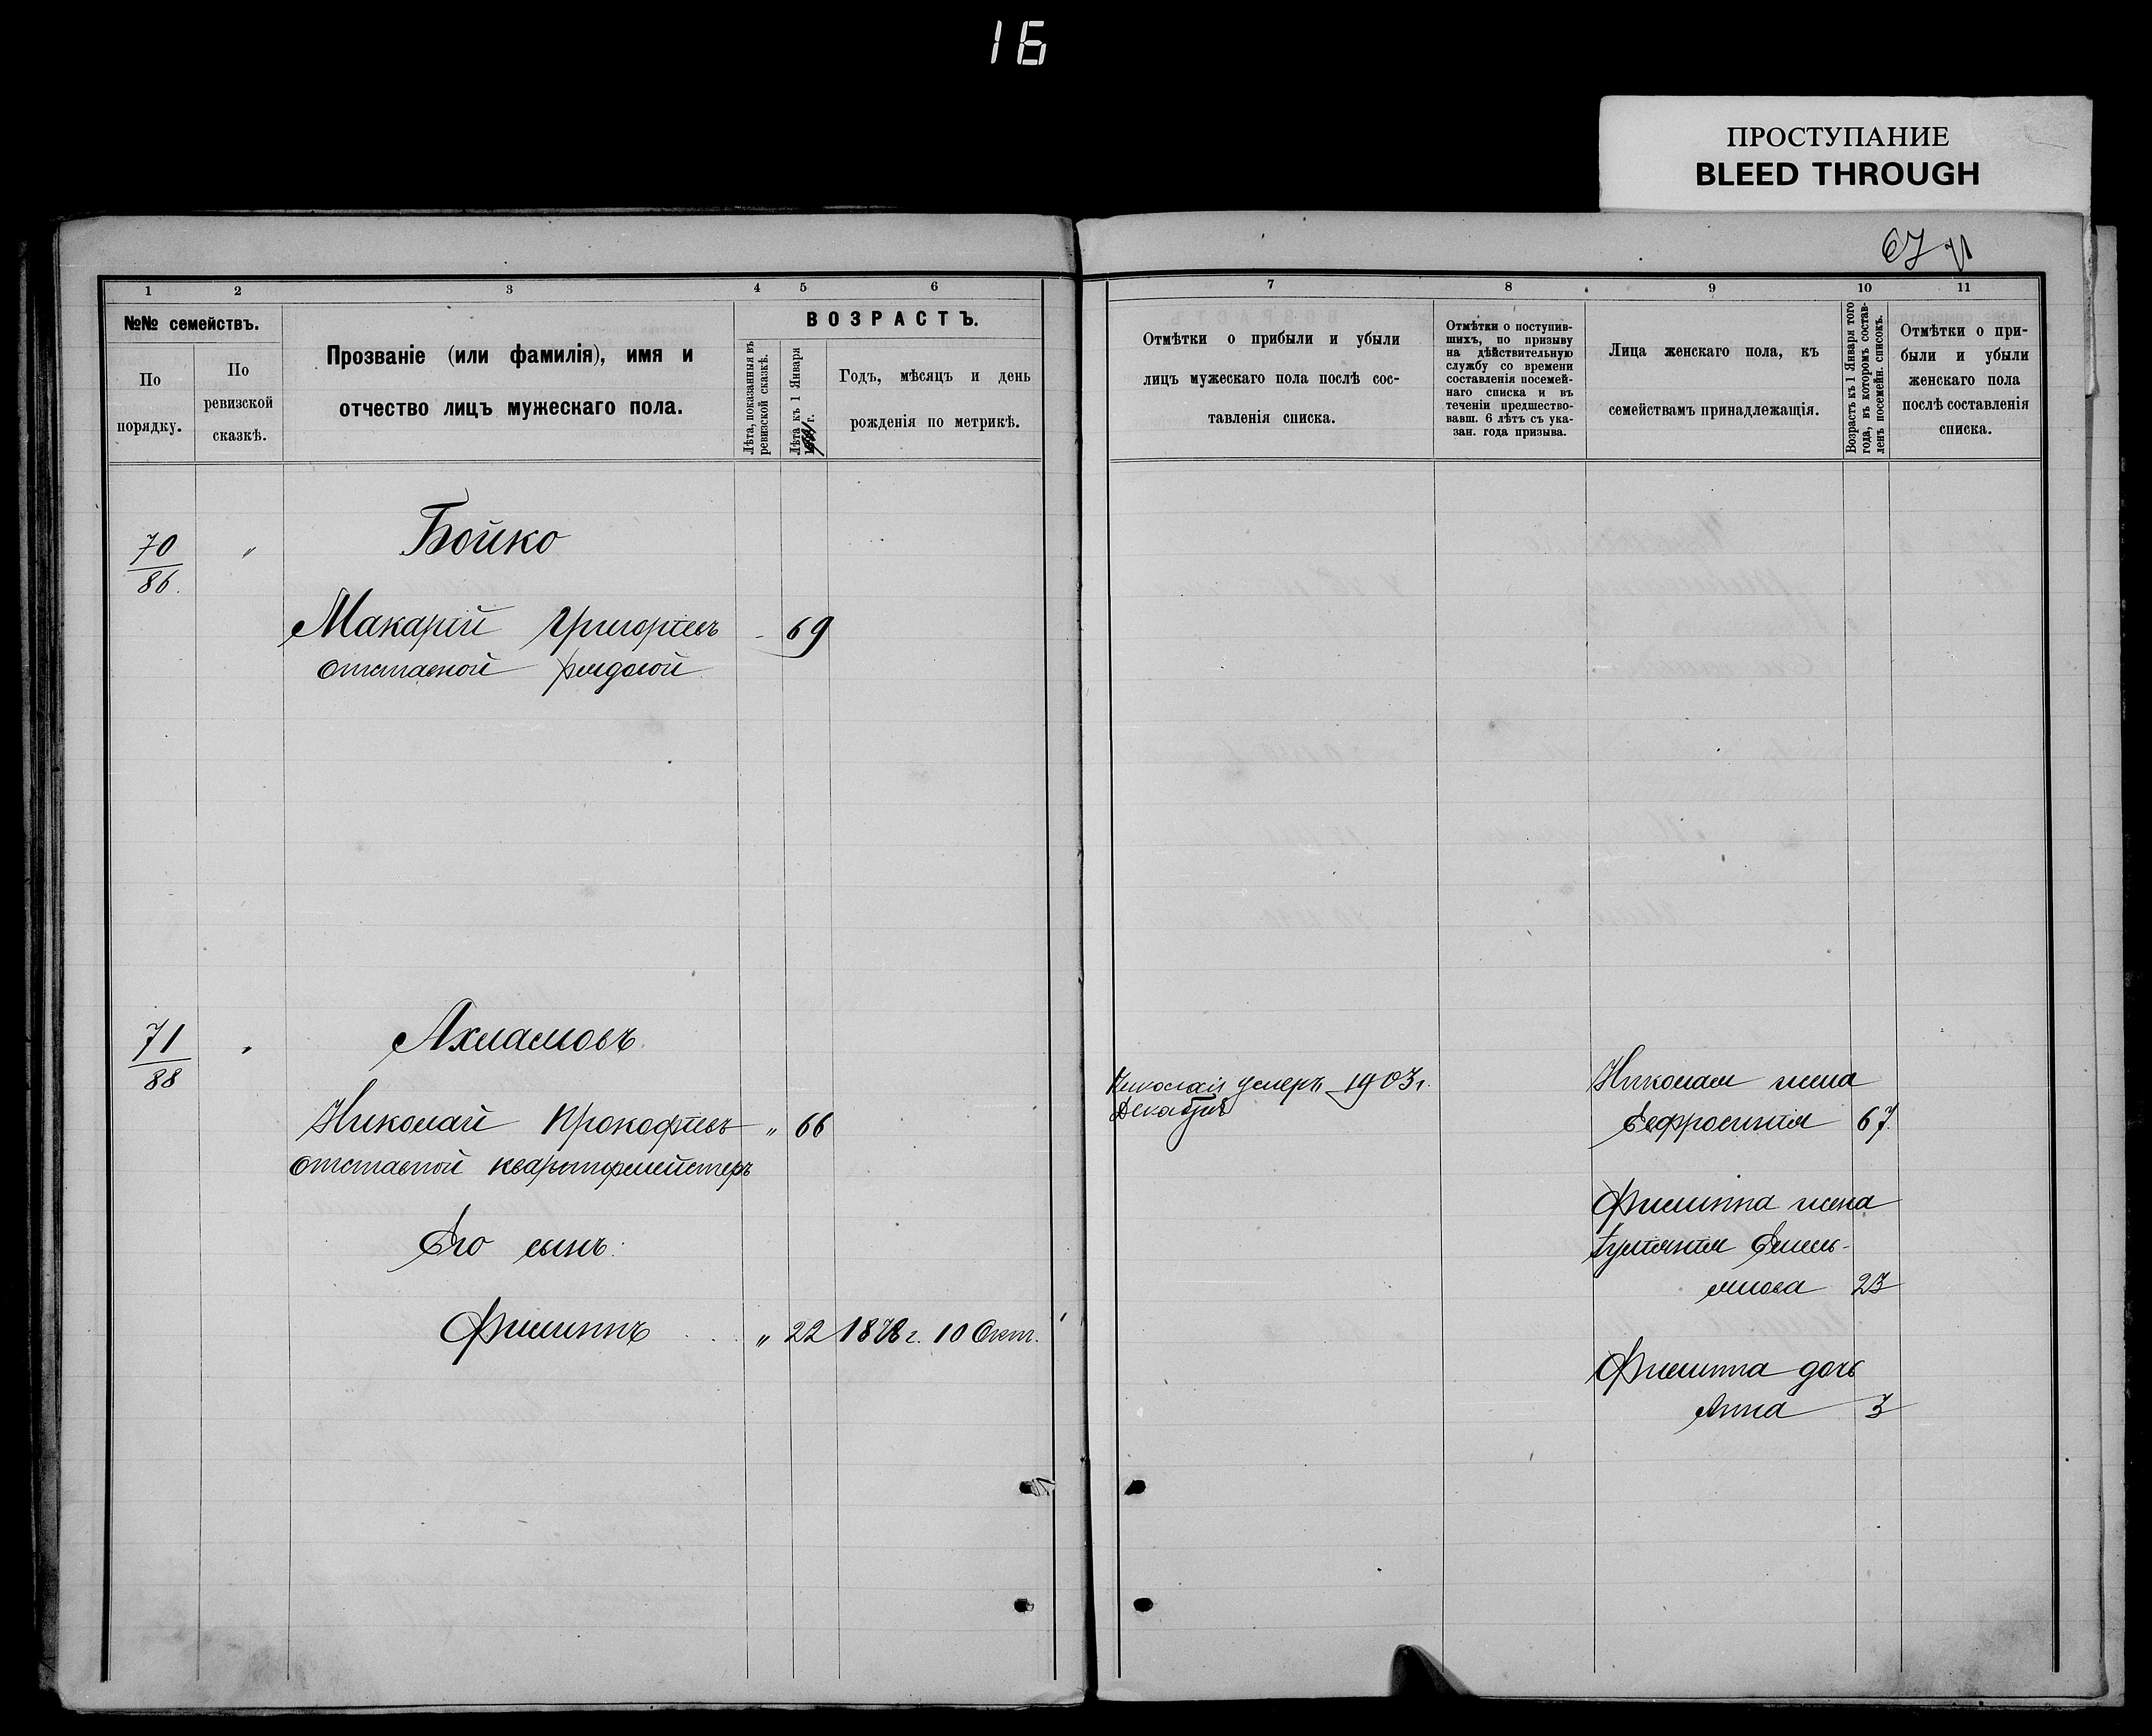 16
ПРОСТУПАНИЕ
BLEED THROUGH
67
1 2 3 4 5 6
7 8 9 10 11
№№ семействъ.
По порядку.
По ревизской сказкѣ.
Прозваніе (или фамилія), имя и
отчество лицъ мужескаго пола.
ВОЗРАСТЪ.
Лѣта, показанныя въ
ревизской сказкѣ.
Лѣта къ 1 Января
г.
Годъ, мѣсяцъ и день
рожденія по метрикѣ.
Отмѣтки о прибыли и убыли
лицъ мужескаго пола послѣ сос-
тавленія списка.
Отмѣтки о поступив-
шихъ, по призыву
на дѣйствительную
службу со времени
составленія посемей-
наго списка и въ
теченіи предшество-
вавш. 6 лѣтъ съ ука-
зан. года призыва.
Лица женскаго пола, къ
семействамъ принадлежащія.
Возрастъ къ 1 Января того
года, въ которомъ состав-
ленъ посемейн. списокъ.
Отмѣтки о при-
были и убыли
женскаго пола
послѣ составленія
списка.
70 „ Бойко
86.
Макарій Григорьевъ - 69
Отставной рядовой
71 „ Ахламовъ
88
Николай Прокофьевъ „ 66
Отставной квартирмейстеръ
Его сынъ:
Филиппъ „ 22 1878 г. 10 Окт.
Николай умеръ 1903 г.
Декабря
Николая жена
Евфросинія 67
Филиппа жена
Іуліанія Емель-
янова 23
Филиппа дочь
Анна 3